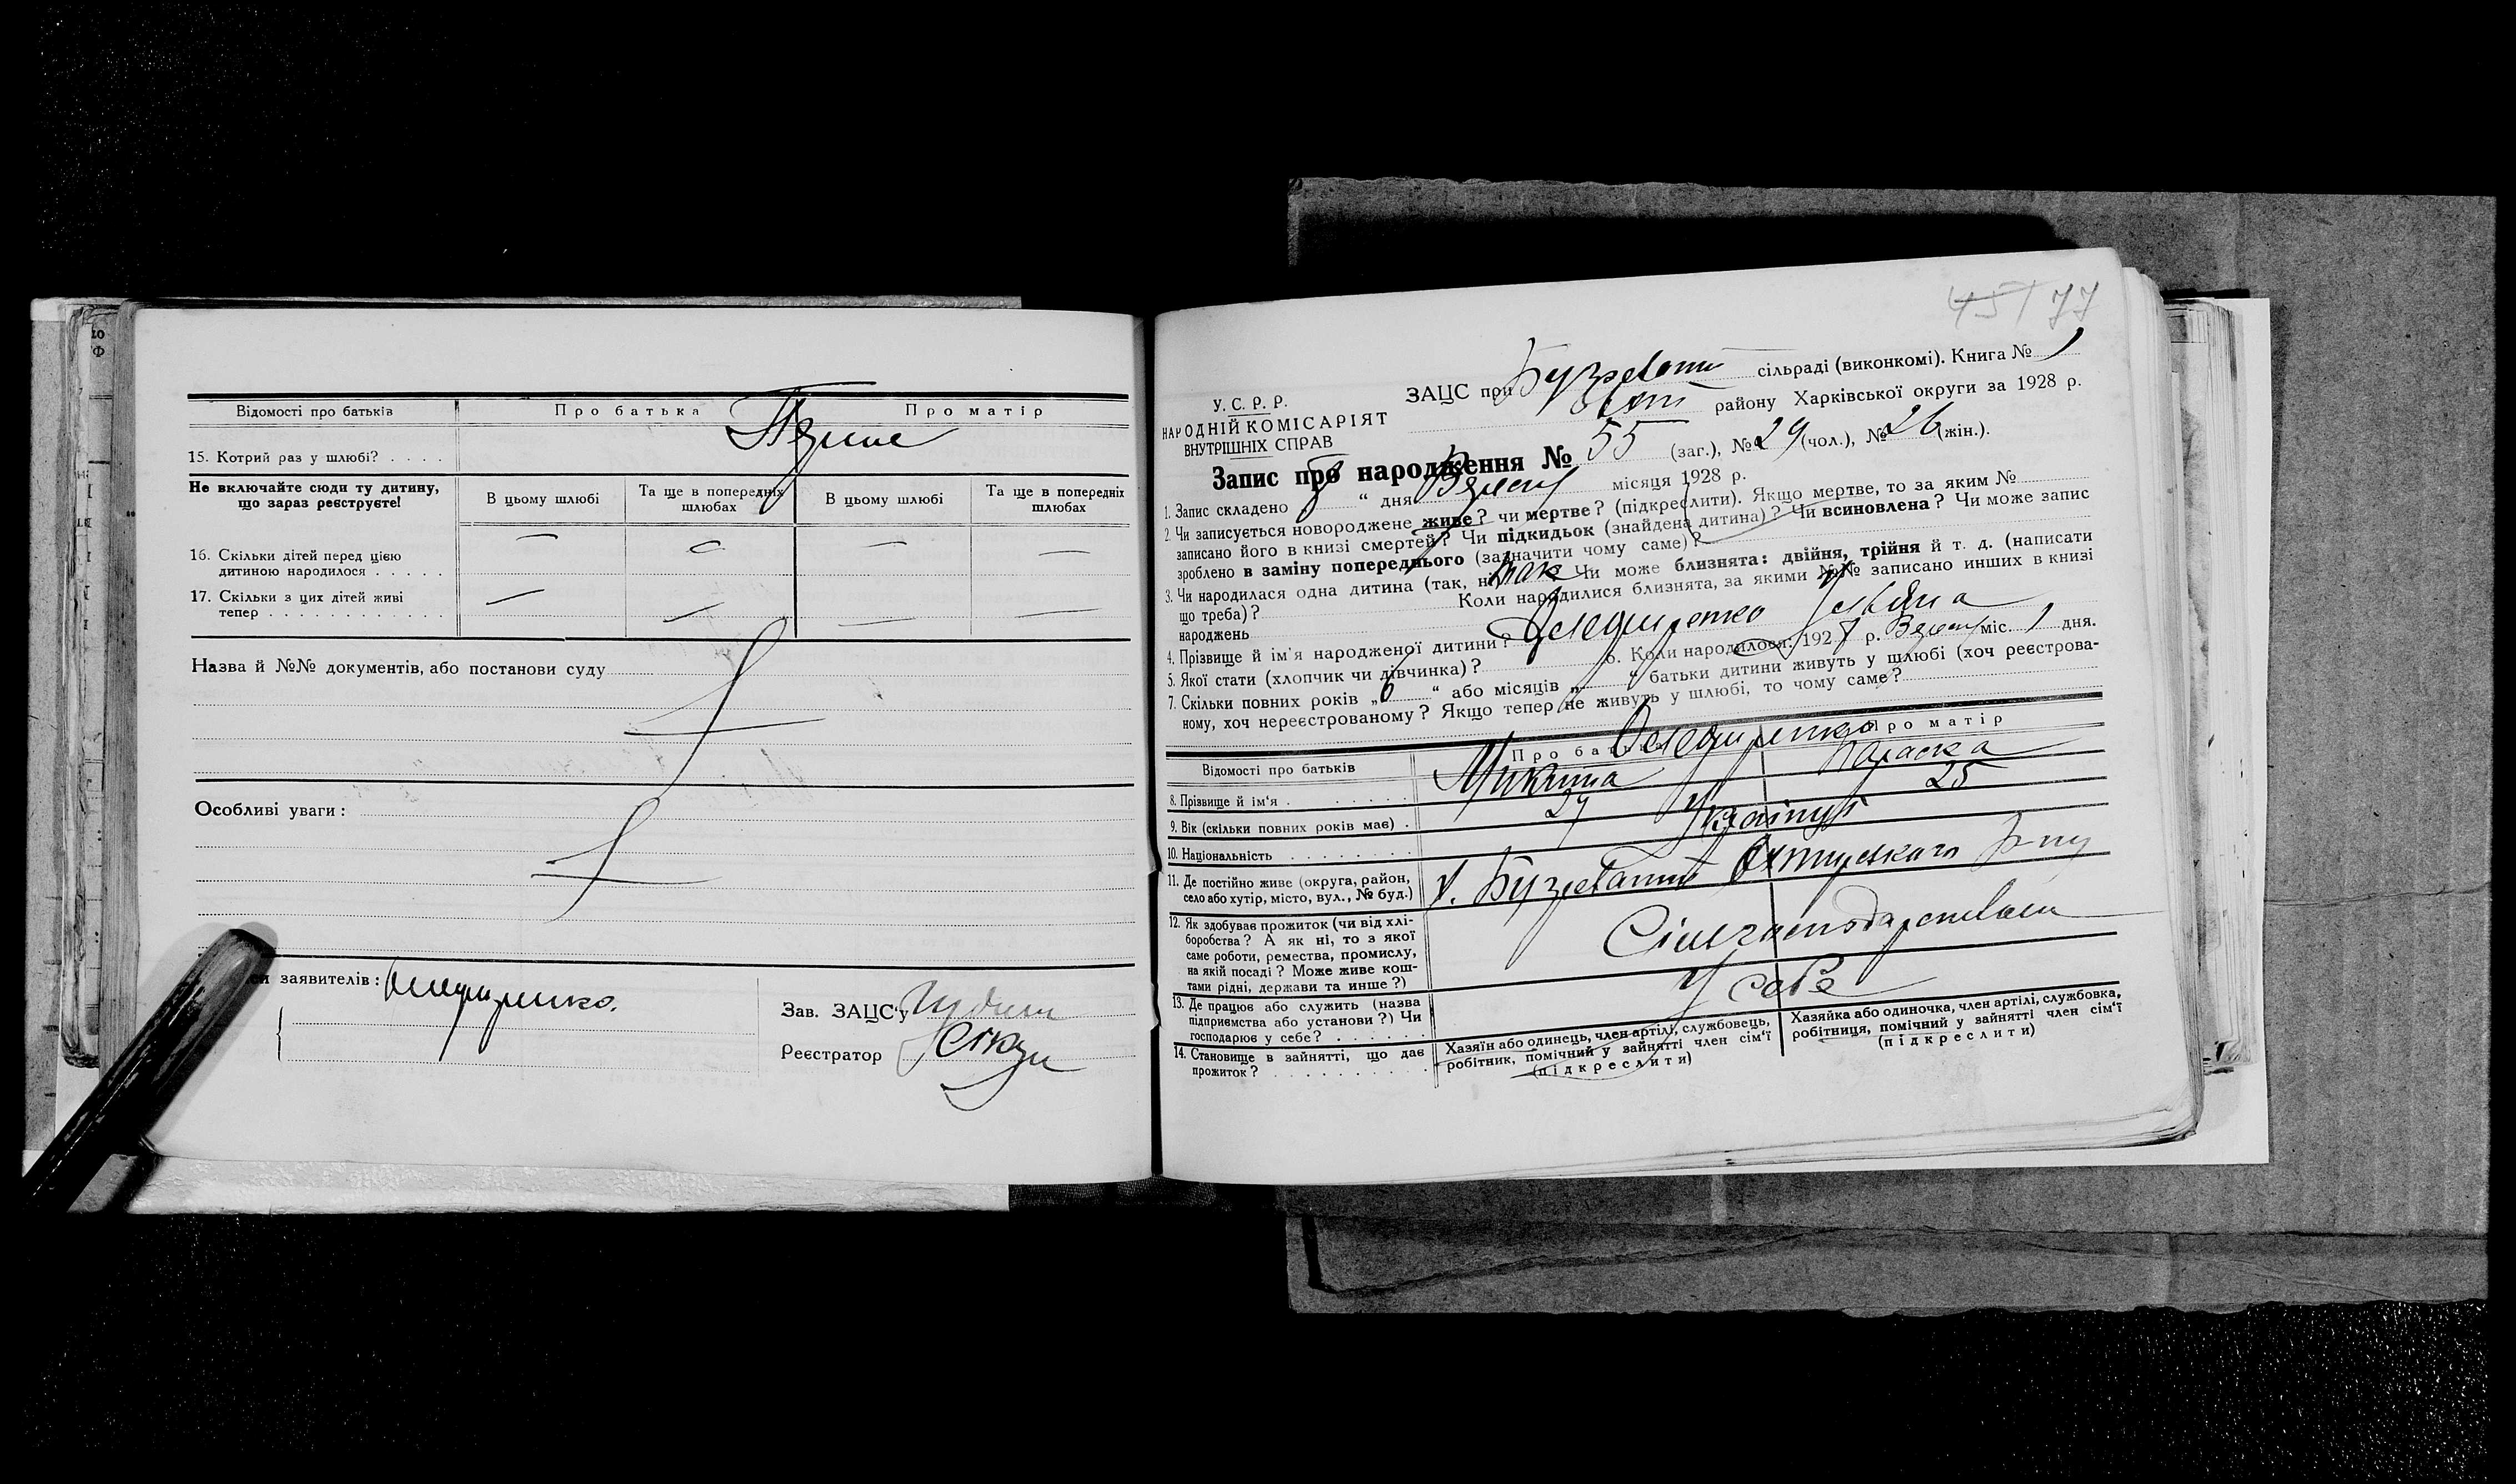 Відомості про батьків Про батька Про матір
15. Котрий раз у шлюбі? . . . .
Не включайте сюди ту дитину, що зараз реєструєте!
В цьому шлюбі
Та ще в попередніх шлюбах
В цьому шлюбі
Та ще в попередніх шлюбах
16. Скільки дітей перед цією
дитиною народилося . . . . .
17. Скільки з цих дітей живі
тепер . . . . . . . . . . . .
Назва й №№ документів, або постанови суду
Особливі уваги :
заявителів :
Зав. ЗАЦС'у
Реєстратор
45 77
У. С. Р. Р.
НАРОДНІЙ КОМІСАРІЯТ
ВНУТРІШНІХ СПРАВ
ЗАЦС при сільраді (виконкомі). Книга № 1
району Харківської округи за 1928 р.
Запис про народження № 55 (заг.), № 29 (чол.), № 26 (жін.).
1. Запис складено “ дня місяця 1928 р.
2. Чи записується новороджене живе? чи мертве? (підкреслити). Якщо мертве, то за яким №
записано його в книзі смертей? Чи підкидьок (знайдена дитина)? Чи всиновлена? Чи може запис
зроблено в заміну попереднього (зазначити чому саме)?
3. Чи народилася одна дитина (так, ні) так Чи може близнята: двійня, трійня й т. д. (написати
що треба)? Коли народилися близнята, за якими №№ записано инших в книзі
народжень
4. Прізвище й ім'я народженої дитини?
5. Якої стати (хлопчик чи дівчинка)? 6. Коли народилося: 1928 р. міс. 1 дня.
7. Скільки повних років „ 6 “ або місяців „ “ батьки дитини живуть у шлюбі (хоч реєстрова-
ному, хоч нереєстрованому? Якщо тепер не живуть у шлюбі, то чому саме?
Відомості про батьків Про батька Про матір
8. Прізвище й ім'я . . . . . . Микита Параска
9. Вік (скільки повних років має) . 27 25
10. Національність . . . . . . . . .
11. Де постійно живе (округа, район,
село або хутір, місто, вул., № буд.)
12. Як здобуває прожиток (чи від хлі-
боробства? А як ні, то з якої
саме роботи, ремества, промислу,
на якій посаді? Може живе кош-
тами рідні, держави та инше?)
13. Де працює або служить (назва
підприємства або установи?) Чи
господарює у себе? . . . . . . У себе
14. Становище в зайнятті, що дає
прожиток? . . . . . . . . . .
Хазяїн або одинець, член артілі, службовець,
робітник, помічний у зайнятті член сім'ї
(підкреслити)
Хазяйка або одиночка, член артілі, службовка,
робітниця, помічний у зайнятті член сім'ї
(підкреслити)